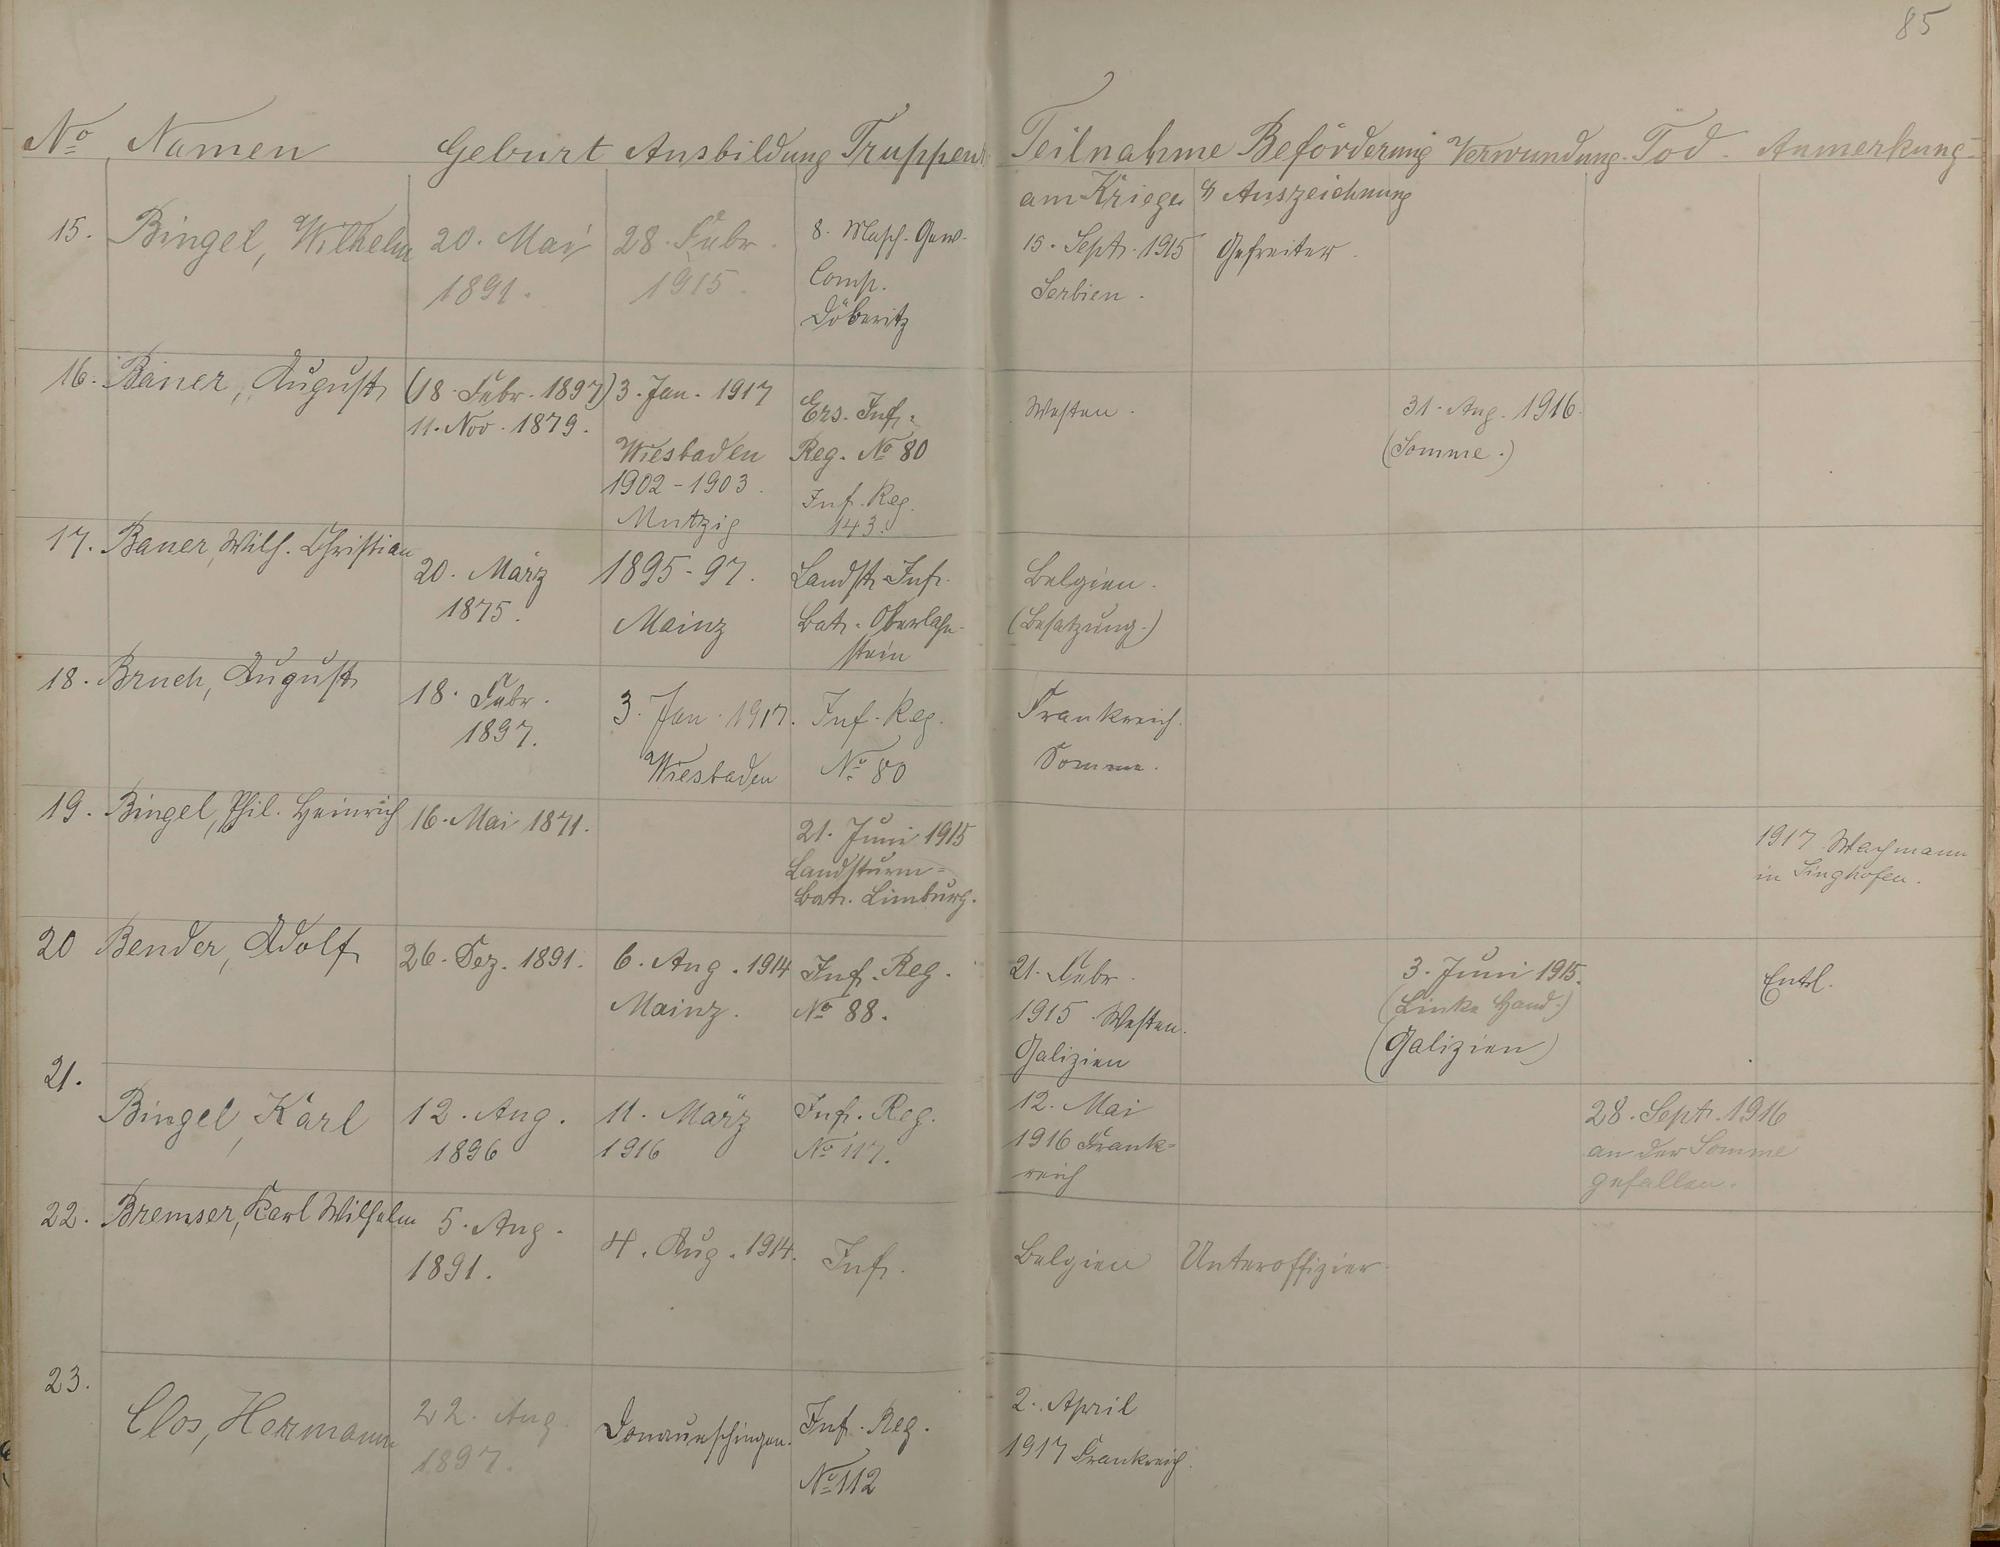 85
No Namen Geburt Ausbildung Truppen Teilnahme am Kriege Beförderung & Auszeichnung Verwundung. Tod. Anmerkung.
15. Bingel, Wilhelm 20. Mai 28. Febr. 8. Masch. Gew. 15. Sept. 1915 Gefreiter.
1891. 1915. Comp. Serbien.
Döberitz
16. Bauer, August (18. Febr. 1897) 3. Jan. 1917 Ers. Inf. Westen. 31. Aug. 1916.
11. Nov. 1879. Wiesbaden Reg. No 80 (Somme.)
1902-1903. Inf. Reg.
Mutzig 143.
17. Bauer, Wilh. Christian 20. März 1895-97. Landst. Inf. Belgien.
1875. Mainz Bat. Oberlahn- (Besatzung.)
stein
18. Bruch, August 18. Febr. 3. Jan. 1917. Inf. Reg. Frankreich.
1897. Wiesbaden No 80 Somme.
19. Bingel, Phil. Heinrich 16. Mai 1871. 21. Juni 1915 1917 Wachmann
Landsturm= in Singhofen.
Bat. Limburg.
20 Bender, Adolf 26. Dez. 1891. 6. Aug. 1914 Inf. Reg. 21. Febr. 3. Juni 1915. Entl.
Mainz. No 88. 1915 Westen. (Linke Hand.)
Galizien (Galizien)
21. Bingel, Karl 12. Aug. 11. März Inf. Reg. 12. Mai 28. Sept. 1916
1896 1916 No 117. 1916 Frank= an der Somme
reich gefallen.
22. Bremser, Karl Wilhelm 5. Aug. 4. Aug. 1914. Inf. Belgien Unteroffizier.
1891.
23. Clos, Hermann 22. Aug. Donaueschingen. Inf. Reg. 2. April
1897. No 112 1917 Frankreich.